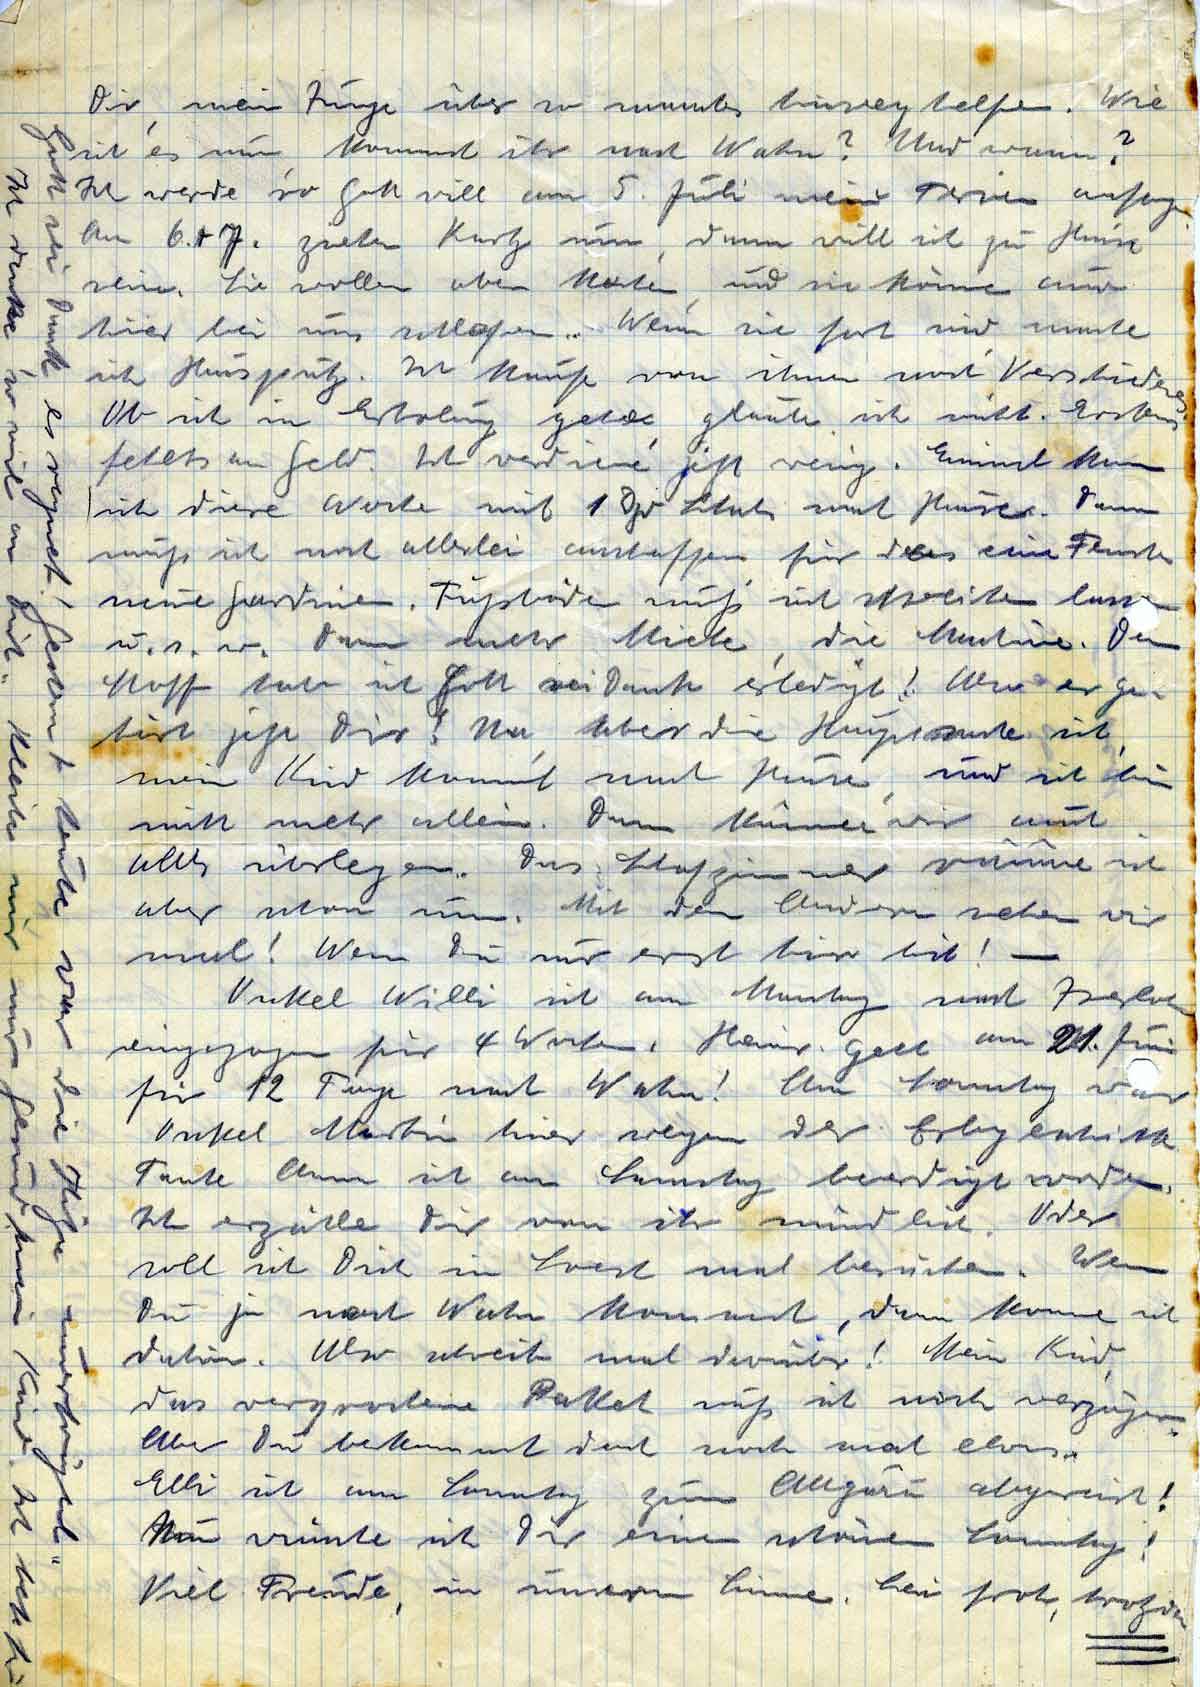 Dir, mein Junge über so manches hinweghelfen. Wie
ist es nun kommst ihr nach Wahn? Und wann?
Ich werde so Gott will am 5. Juli meine Ferien anfangen.
Am 6. + 7. ziehen Kurtz um, dann will ich zu Hause
sein. Sie wollen oben kochen, und sie können auch
hier bei uns schlafen. Wenn sie fort sind, mache
ich Hausputz. Ich kaufe von ihnen noch Verschiedenes.
Ob ich in Erholung gehe, glaube ich nicht. Erstens
fehlts an Geld. Ich verdiene jetzt wenig. Einmal kam
ich diese Woche mit 1 Schick nach Hause. Dann
muß ich noch allerlei anschaffen, für das eine Fenster
neue Gardinen. Fußböden muß ich streichen lassen
u. s. w. Dann mehr Miete, die Maschine. Den
Stoff habe ich Gott sei Dank erledigt! Also er ge-
hört jetzt Dir! Na, aber die Hauptsache ist,
mein Kind kommt nach Hause, und ich bin
nicht mehr allein. Dann können wir auch
alles überlegen. Das Schlafzimmer räume ich
aber schon um. Mit dem Andern sehen wir
mal! Wenn Du nur erst hier bist! —
Onkel Willi ist am Montag nach Iserlohn
eingezogen für 4 Wochen. Heinr. geht am 21. Juni
für 12 Tage nach Wahn! Am Sonntag war
Onkel Martin hier wegen der
Tante Anna ist am Samstag beerdigt worden.
Ich erzähle Dir von ihr mündlich. Oder
soll ich Dich in Soest mal besuchen. Wenn
Du ja nach Wahn kommst, dann komme ich
dahin. Also schreib mal darüber! Mein Kind,
das versprochene Paket muß ich noch verzögern.
Aber Du bekommst doch noch mal etwas.
Elli ist am Sonntag zum Allgäu abgereist!
Nun wünsche ich Dir einen schönen Sonntag!
Viel Freude, in unserm Sinne. Sei froh, trotzdem
Gott sei Dank es regnet! Gestern + heute war die Hitze unerträglich"
Ich denke so viel an Dich. Bleibe mir nur gesund, mein Kind. Ich bete für